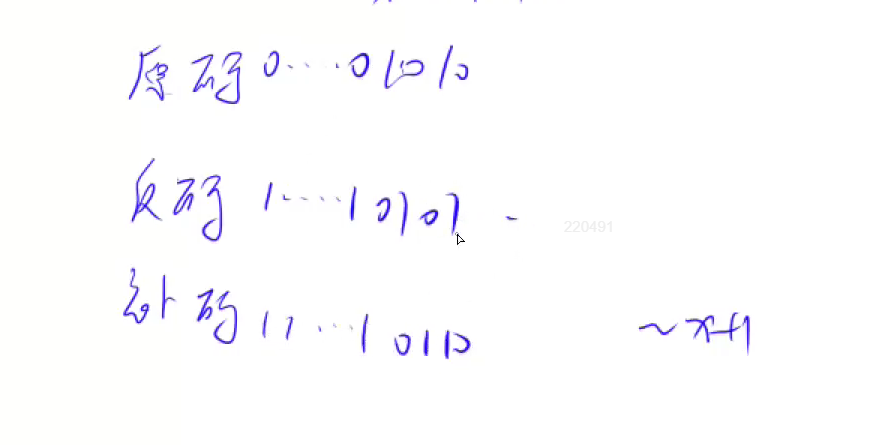 原码 0·····01010
反码 1·····10101 -
220491
补码 11···10110 ~x+1